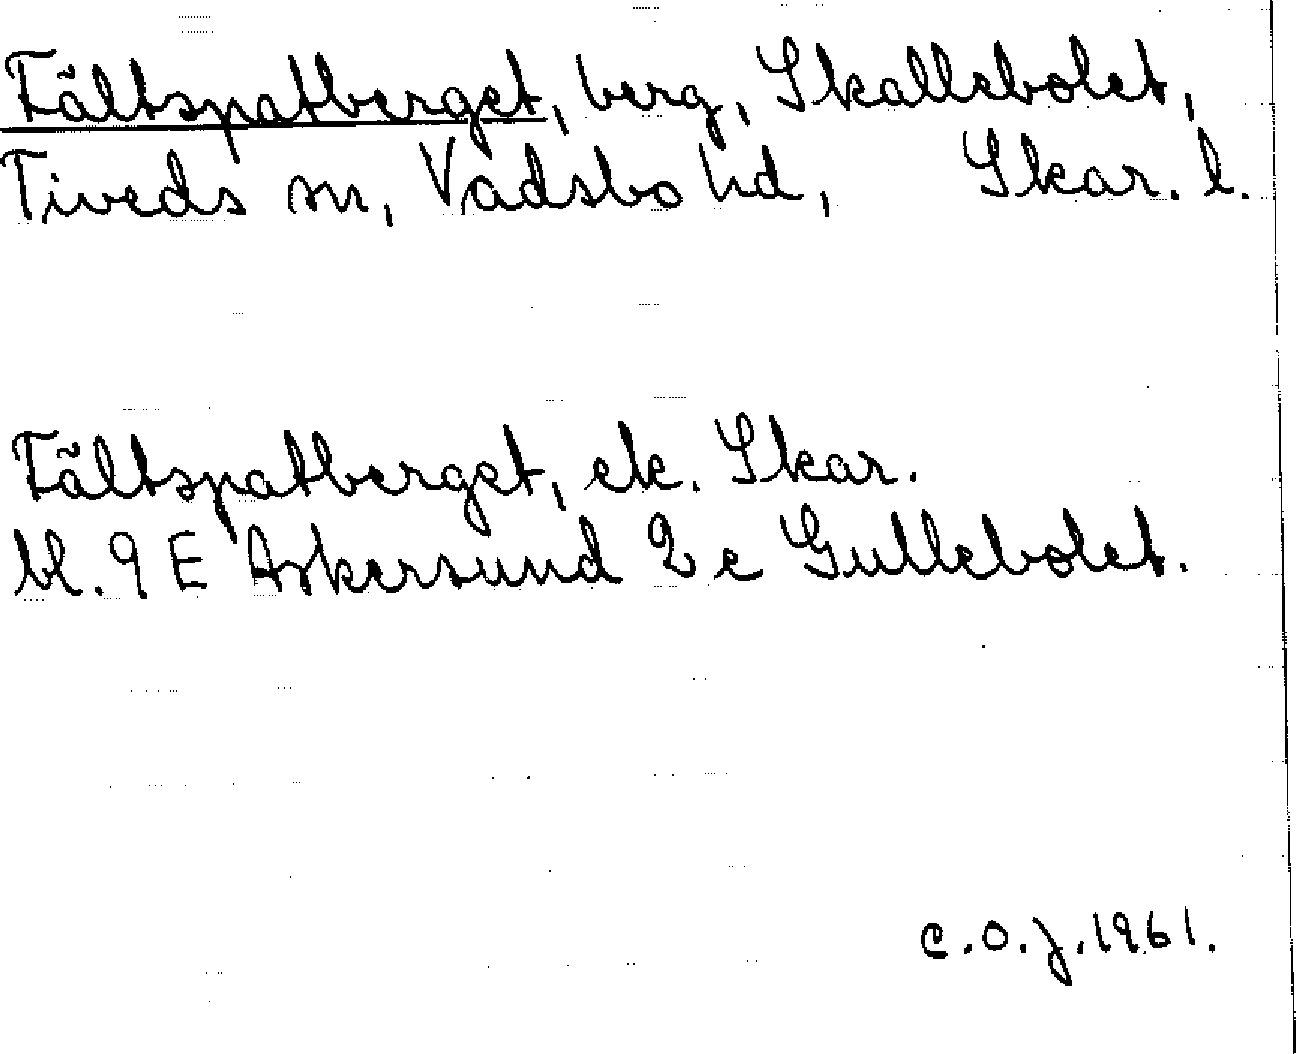 Fältspatberget, berg, Skallebolet,
Tiveds sn, Vadsbo hd, Skar. l.
Fältspatberget, ek. Skar.
bl. 9 E Askersund 2 e Gullebolet.
C.O.J. 1961.